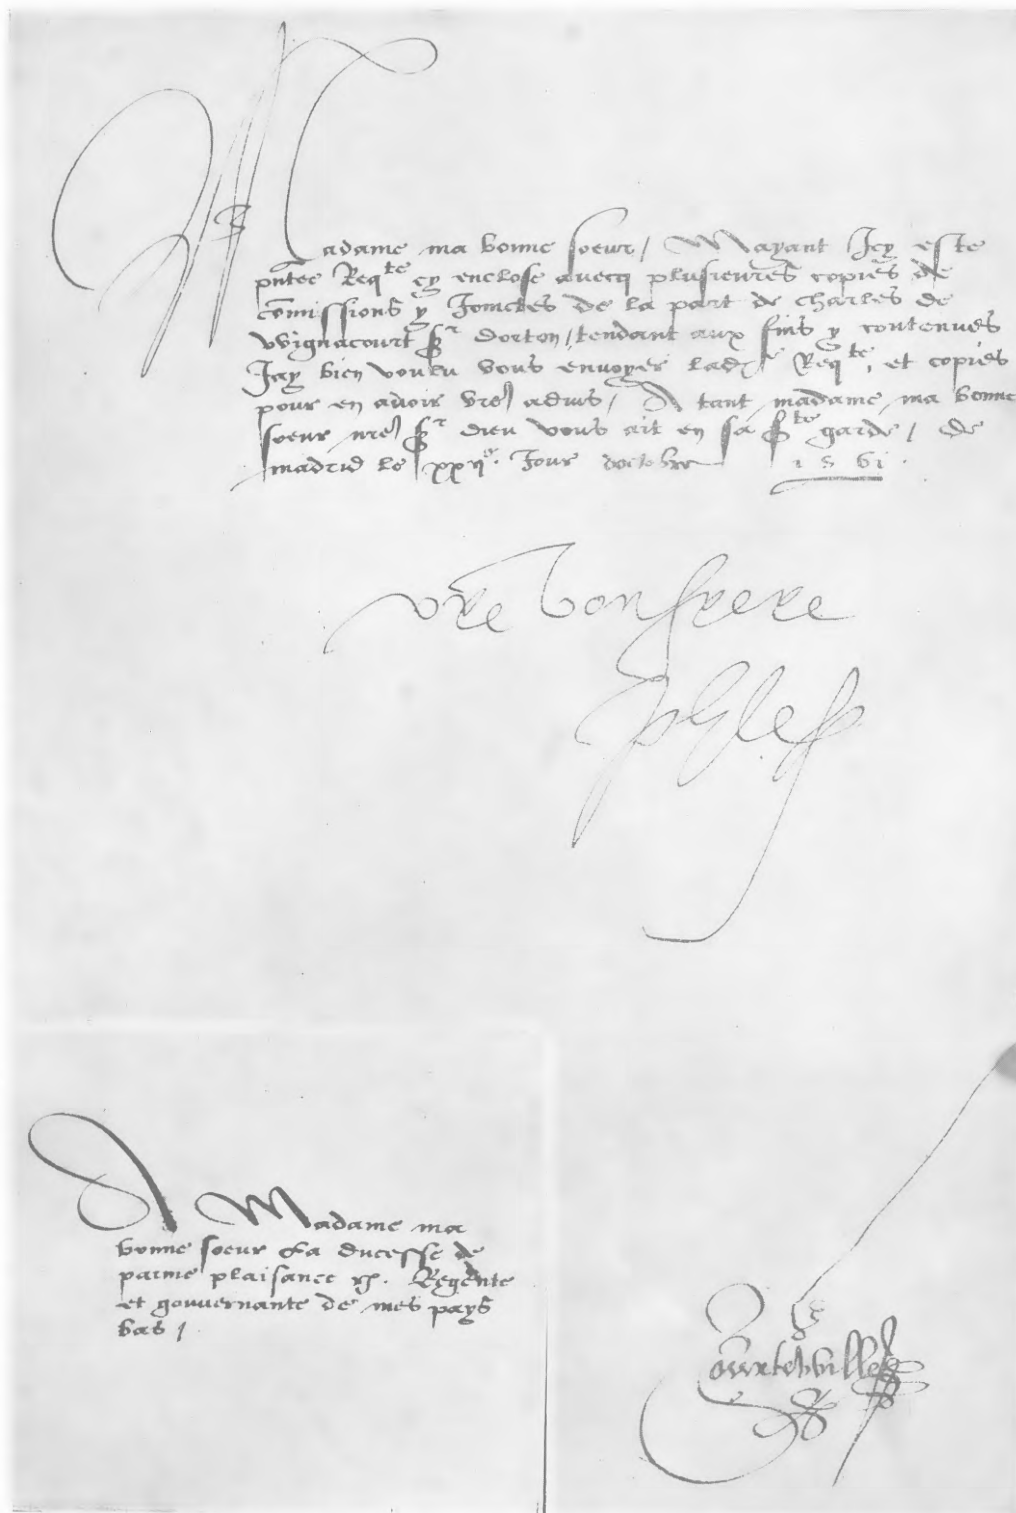 Madame ma bonne soeur / Mayant Icy este
pntee Req^te cy enclose avecq plusieures copies de
comissions y Joinctes de la part de Charles de
Wignacourt S^r Dorton / tendant aux fins y contenues
Jay bien voulu vous envoyer lad^e Req^te, et copies
pour en avoir vre advis / A tant madame ma bonne
soeur nre S^r dieu vous ait en sa S^te garde / De
madrid le xxij^e. Jour doctobre 1561.
vre bon frere
Phle
A Madame ma
bonne soeur La ducesse de
parme plaisance &c. Regente
et gouvernante de mes pays
bas /
Courtewille